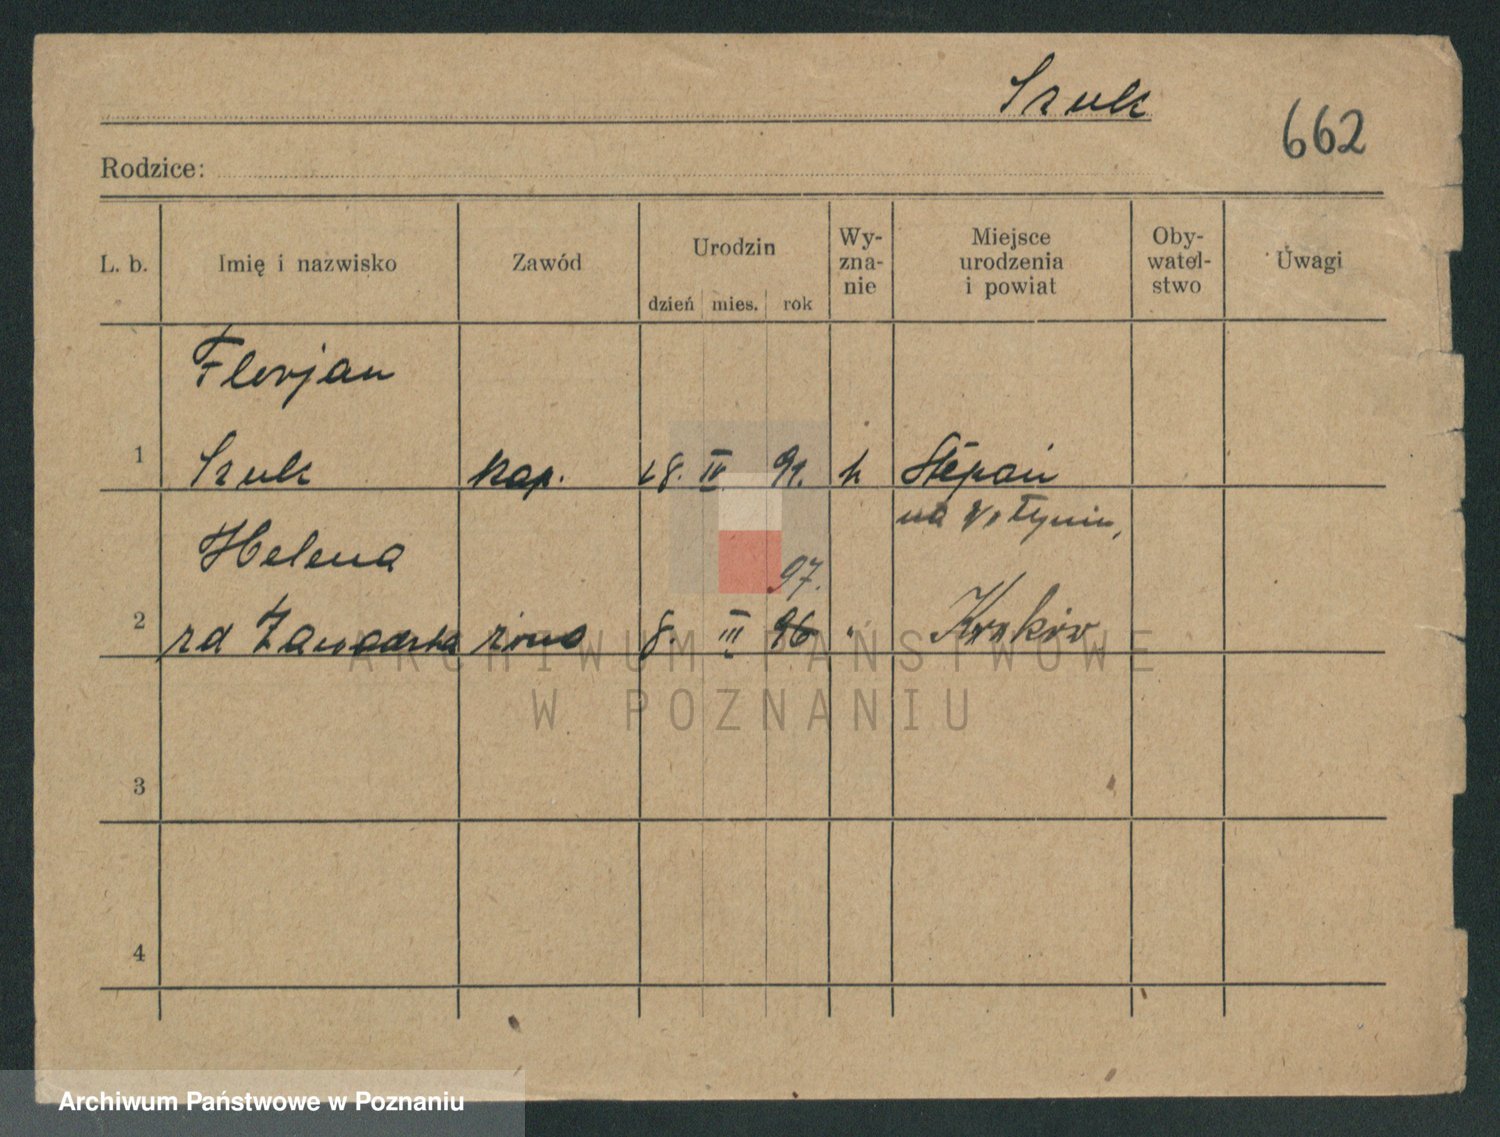 Szulc
662
Rodzice:
L. b.
Imię i nazwisko
Zawód
Urodzin
dzień mies. rok
Wy-
zna-
nie
Miejsce
urodzenia
i powiat
Oby-
watel-
stwo
Uwagi
Florjan
1 Szulc kap. 28. IV 91. k Stepań
na Wołyniu,
Helena
97.
2 zd żona 8. III 96 " Kraków
3
4
ARCHIWUM PAŃSTWOWE
W POZNANIU
Archiwum Państwowe w Poznaniu